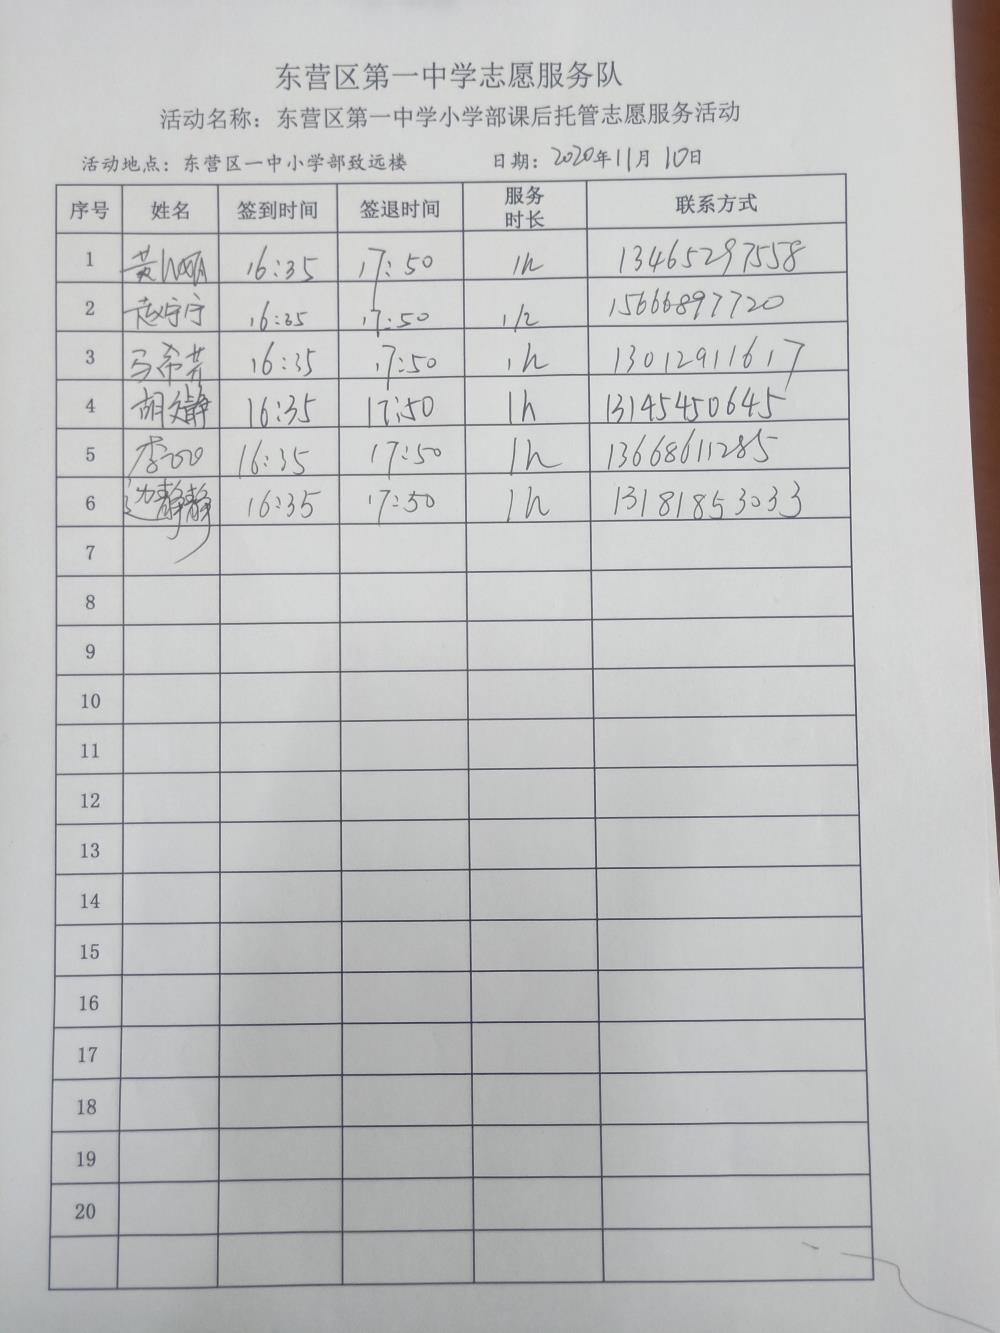 东营区第一中学志愿服务队
活动名称：东营区第一中学小学部课后托管志愿服务活动
活动地点：东营区一中小学部致远楼 日期：2020年11月10日
序号 姓名 签到时间 签退时间 服务时长 联系方式
1 黄 16:35 17:50 1h 13465297558
2 赵宁宁 16:35 17:50 1h 15666897720
3 马希芳 16:35 17:50 1h 13012911617
4 胡文静 16:35 17:50 1h 13145450645
5 李 16:35 17:50 1h 13668611285
6 边静静 16:35 17:50 1h 13181853033
7
8
9
10
11
12
13
14
15
16
17
18
19
20